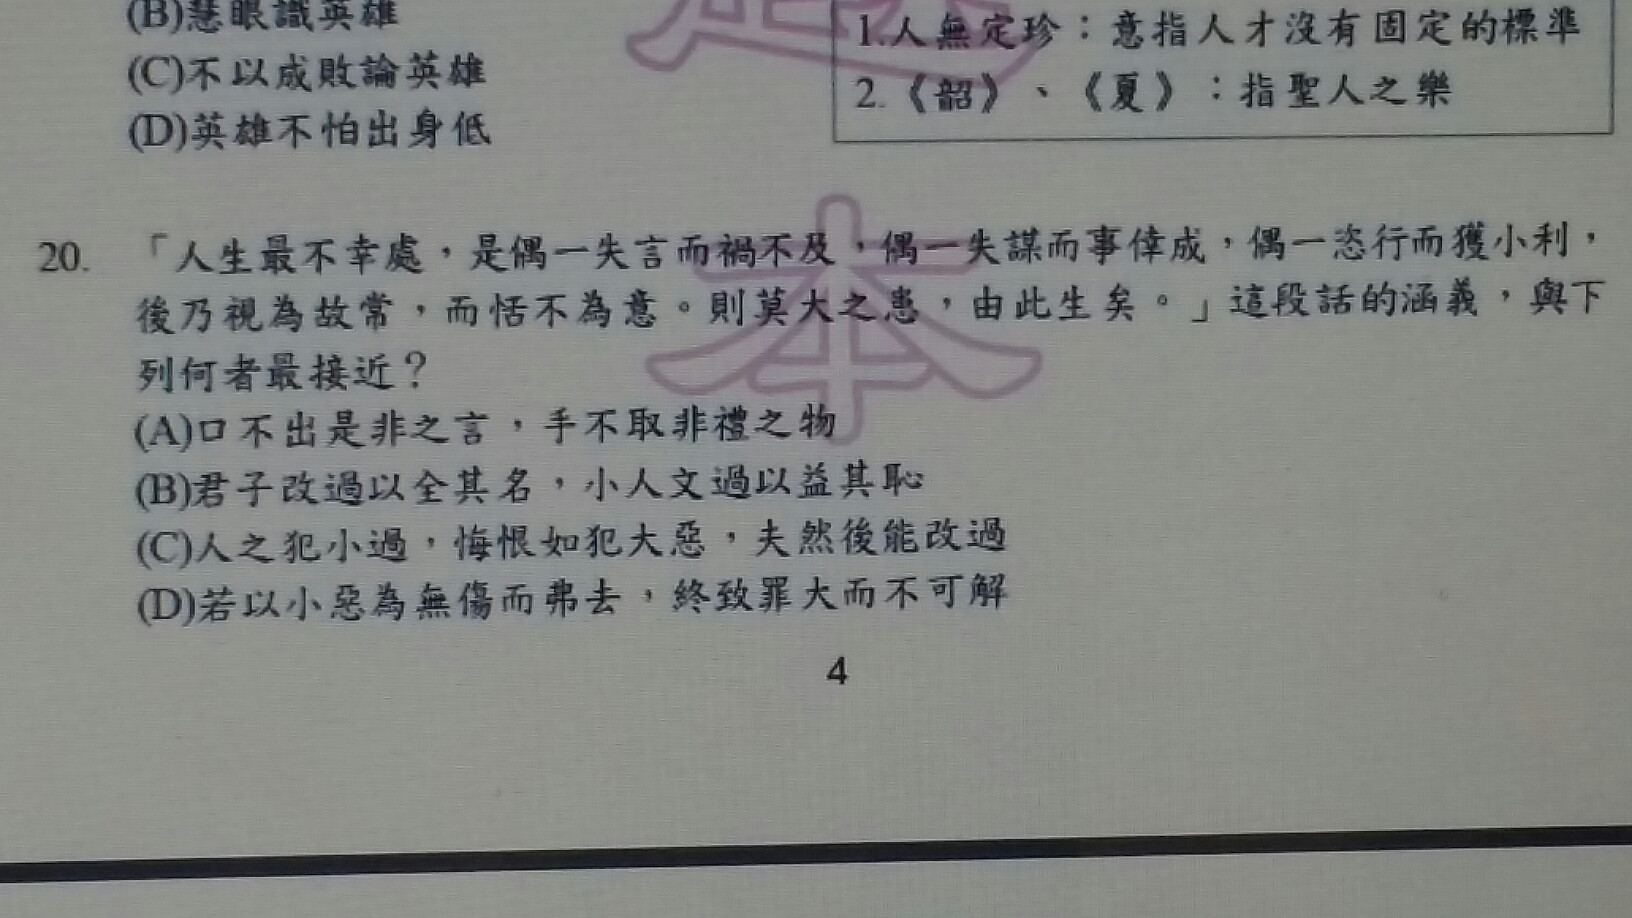 (B)慧眼識英雄
(C)不以成敗論英雄
(D)英雄不怕出身低
1.人無定珍：意指人才沒有固定的標準
2.《韶》、《夏》：指聖人之樂
20. 「人生最不幸處，是偶一失言而禍不及，偶一失謀而事倖成，偶一恣行而獲小利，
後乃視為故常，而恬不為意。則莫大之患，由此生矣。」這段話的涵義，與下
列何者最接近？
(A)口不出是非之言，手不取非禮之物
(B)君子改過以全其名，小人文過以益其恥
(C)人之犯小過，悔恨如犯大惡，夫然後能改過
(D)若以小惡為無傷而弗去，終致罪大而不可解
本
4